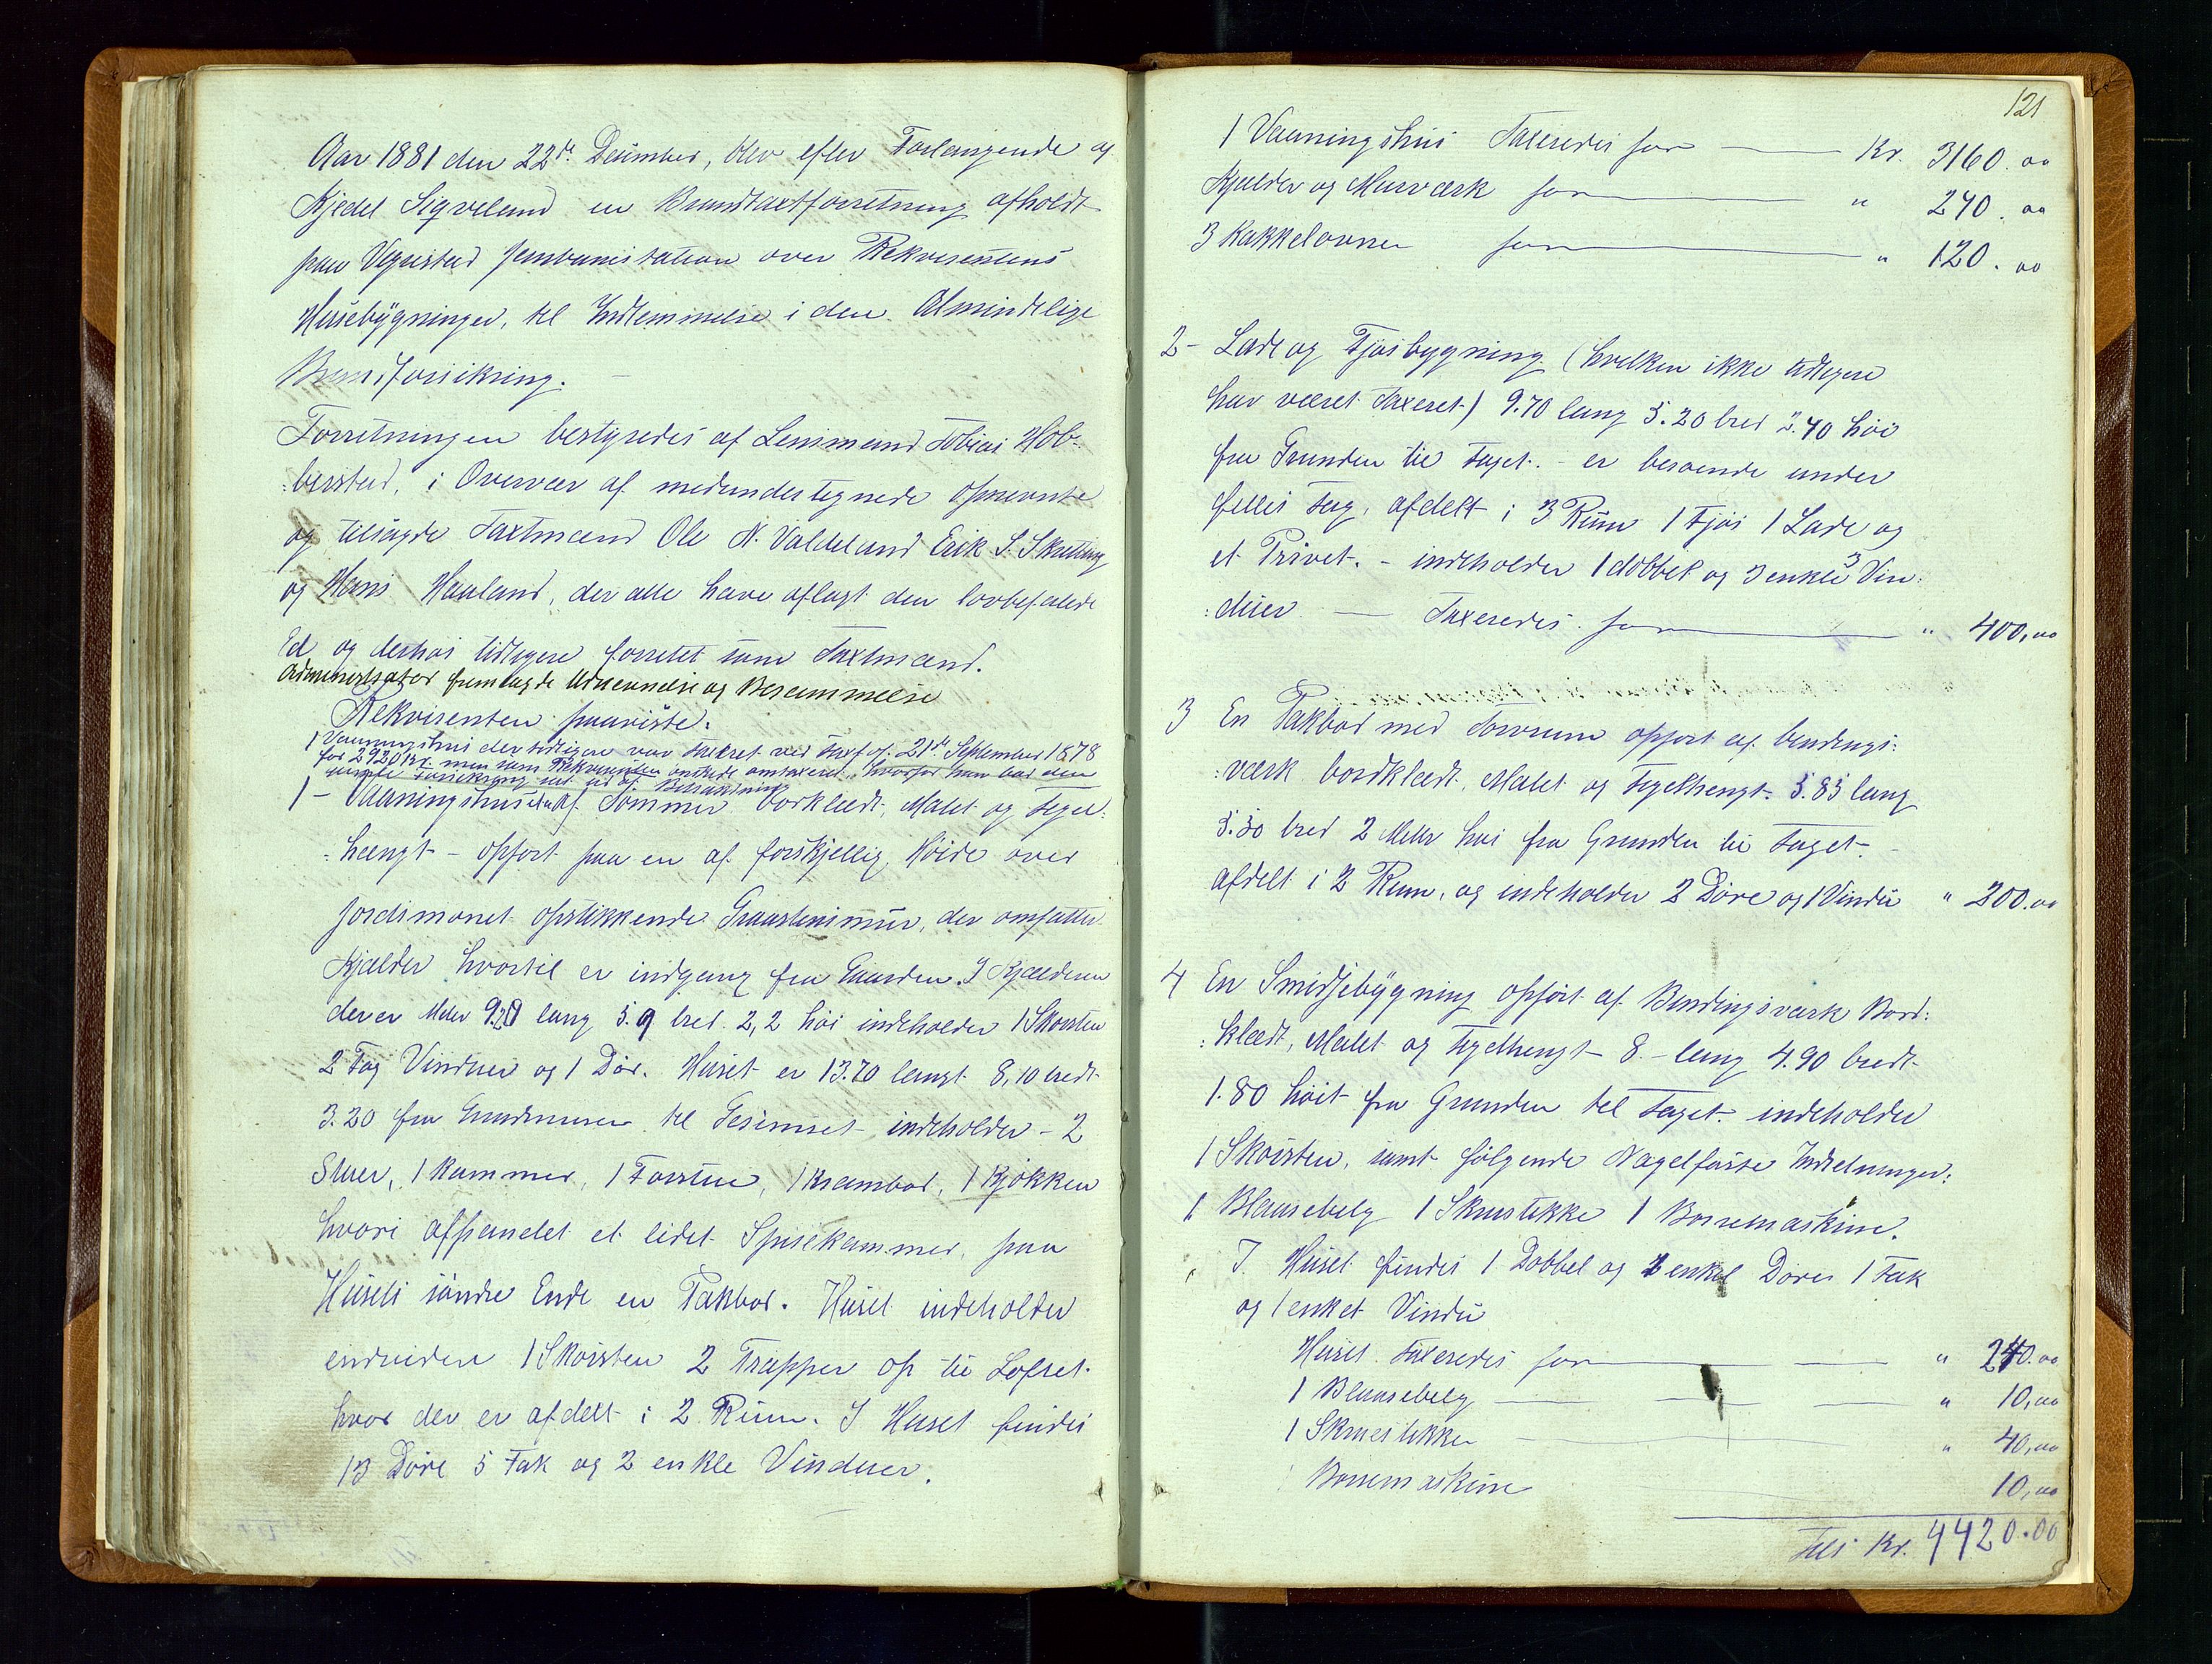 Aar 1881 den 22de December, blev efter Forlangende af
Kjedel Sigveland en Brandtaxtforretning afholdt
paa Vigrestad Jernbanestation over Rekvirentens
Huusebygninger, til Indlemmelse i den Almindelige
Brandforsikring. –
Forretningen bestyredes af Lensmand Tobias Hob-
:berstad, i Overvær af medundertegnede opnævnte
og tilsagde Taxtmænd Ole N. Valdeland Erik S.
og Hans Haaland, der alle have aflagt den lovbefalede
Ed og derhos tidligere forrettet som Taxtmænd.
Administrator fremlagde Udnævnelse og Berammelse
Rekvirenten paaviste:
1 Vaaningshus der tidligere var taxeret ved Taxt af 21de September 1878
for 2920 Kr. men som Rekvirenten ønskede omtaxeret, hvorfor han bad den
gamle Forsikring sat ud af Betragtning
1 – Vaaningshuset af Tømmer bordklædt, Malet og Tegel:
:hængt – opført paa en af forskjellig Høide over
Jordsmonet opstikkende Graastensmur, der omfatter
Kjælder hvortil er indgang fra Gaarden. I Kjælderen
der er Meter 9.20 lang 5.9 bred. 2,2 høi indeholder 1 Skorsten
2 Fag Vinduer og 1 Dør. Huset er 13.70 langt 8,10 bredt
3.20 fra Grundmuren til Gesimset indeholder – 2
Stuer, 1 Kammer, 1 Forstue, 1 Krambod, 1 Kjøkken
hvori afpanelet et lidet Spisekammer, paa
Husets søndre Ende en Pakbod. Huset indeholder
endvidere 1 Skorsten 2 Trapper op til Loftet
hvor der er afdelt i 2 Rum. I Huset findes
13 Døre 5 Fak og 2 enkle Vinduer.
121
1 Vaaningshus Taxeredes for — Kr. 3160.00
Kjælder og Murværk for — " 240.00
3 Kakkelovne for — " 120.00
2 – Lade og Fjøsbygning (hvilken ikke tidligere
har været Taxeret) 9.70 lang 5.20 bred 2.40 høi
fra Grunden til Taget. – er beroende under
fælles Tag, afdelt i 3 Rum 1 Fjøs 1 Lade og
et Privet. – indeholder 1 dobbel og 3 enkle 3 Vin:
:duer — Taxeredes for — " 400,00
3 En Pakbod med Torvrum opført af bendings:
:værk bordklædt, Malet og Tegelhengt. 5.85 lang
5.30 bred 2 Meter høi fra Grunden til Taget. –
afdelt i 2 Rum, og indeholder 2 Døre og 1 Vindu " 200.00
4 En Smidjebygning opført af Bindingsværk Bord:
:klædt, Malet og Tegelhengt – 8 – lang 4.90 bredt
1.80 høit fra Grunden til Taget. indeholder
1 Skorsten, samt følgende Nagelfaste Indretninger:
1 Blæsebelg 1 Skruestikke 1 Borremaskine.
I Huset findes 1 Dobbel og 2 enkel Døre 1 Fak
og 1 enkel Vindu
Huset Taxeredes for — " 240.00
1 Blæsebelg — " 10,00
1 Skruestikke — " 40,00
Borremaskine 10,00
Tils Kr. 4420.00